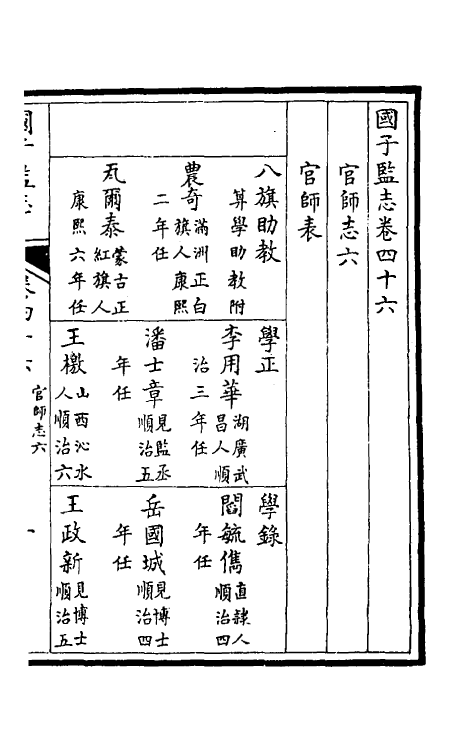 國子監志卷四十六
官師志六
官師表
八旗助教
算學助教附
農奇滿洲正白旗人康熙二年任
瓦爾泰蒙古正紅旗人康熙六年任
學正
李用華湖廣武昌人順治三年任
潘士章見監丞順治五年任
王檄山西沁水人順治六
學錄
閻毓儁直隸人順治四年任
岳國城見博士順治四年任
王政新見博士順治五
官師志六
一